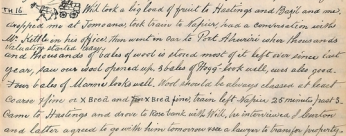 TH 16 Will took a big load of fruit to Hastings and Basil and me.
dropped me at Tomoana took train to Napier, had a conversation with
Mr Kettle in his office, then went in car to Port Ahuriri where thousands
Valuating started Wear,
and thousands of bales of wool is stored most of it left over since last
year, saw our wool opened up, 3 bales of Hogg look well, ucs also good.
Four bales of Merino looks well, Wool should be always classed at least
Coarse & fine or X Bred and X Bred fine; train left Napier 28 minute past 3.
Came to Hastings and drove to Rose bank with Will, he interviewed
and latter agreed to go with him tomorrow see a lawyer to transfer property.